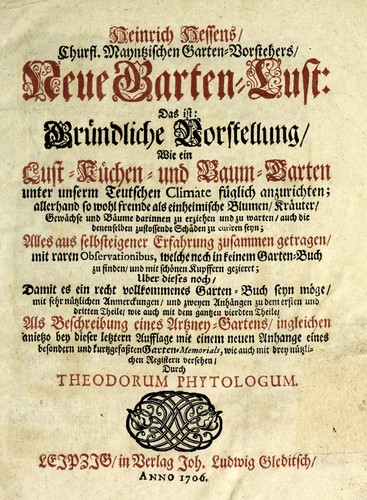 Heinrich Hessens/
Churfl. Mayntzischen Garten-Vorstehers/
Neue Garten-Lust:
Das ist:
Gründliche Vorstellung/
Wie ein
Lust-Küchen- und Baum-Garten
unter unserm Teutschen Climate füglich anzurichten;
allerhand so wohl fremde als einheimische Blumen/Kräuter/
Gewächse und Bäume darinnen zu erziehen und zu warten/ auch die
denenselben zustossende Schäden zu curiren seyn;
Alles aus selbsteigener Erfahrung zusammen getragen/
mit raren Observationibus, welche noch in keinem Garten-Buch
zu finden/und mit schönen Kupffern gezieret;
Uber dieses noch/
Damit es ein recht vollkommenes Garten-Buch seyn möge/
mit sehr nützlichen Anmerckungen/ und zweyen Anhängen zu dem ersten und
dritten Theile/ wie auch mit dem gantzen vierdten Theile/
Als Beschreibung eines Artzney-Gartens/ ingleichen
anietzo bey dieser letztern Aufflage mit einem neuen Anhange eines
besondern und kurtzgefaßten Garten-Memorials, wie auch mit drey nützli-
chen Registern versehen/
Durch
THEODORUM PHYTOLOGUM.
LEJPZJG/ in Verlag Joh. Ludwig Gleditsch/
ANNO 1706.